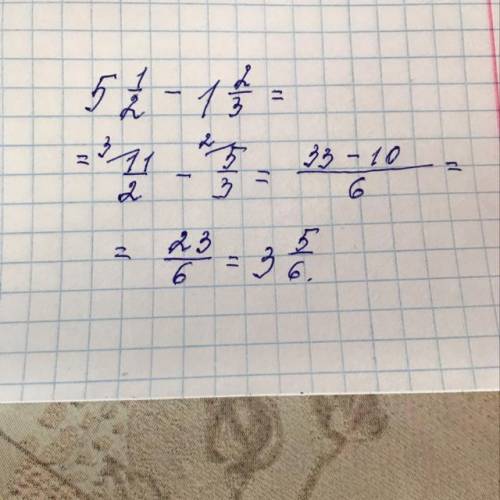 5 1/2 - 1 2/3 =
= ³11/2 - ²5/3 = (33 - 10)/6 =
= 23/6 = 3 5/6.